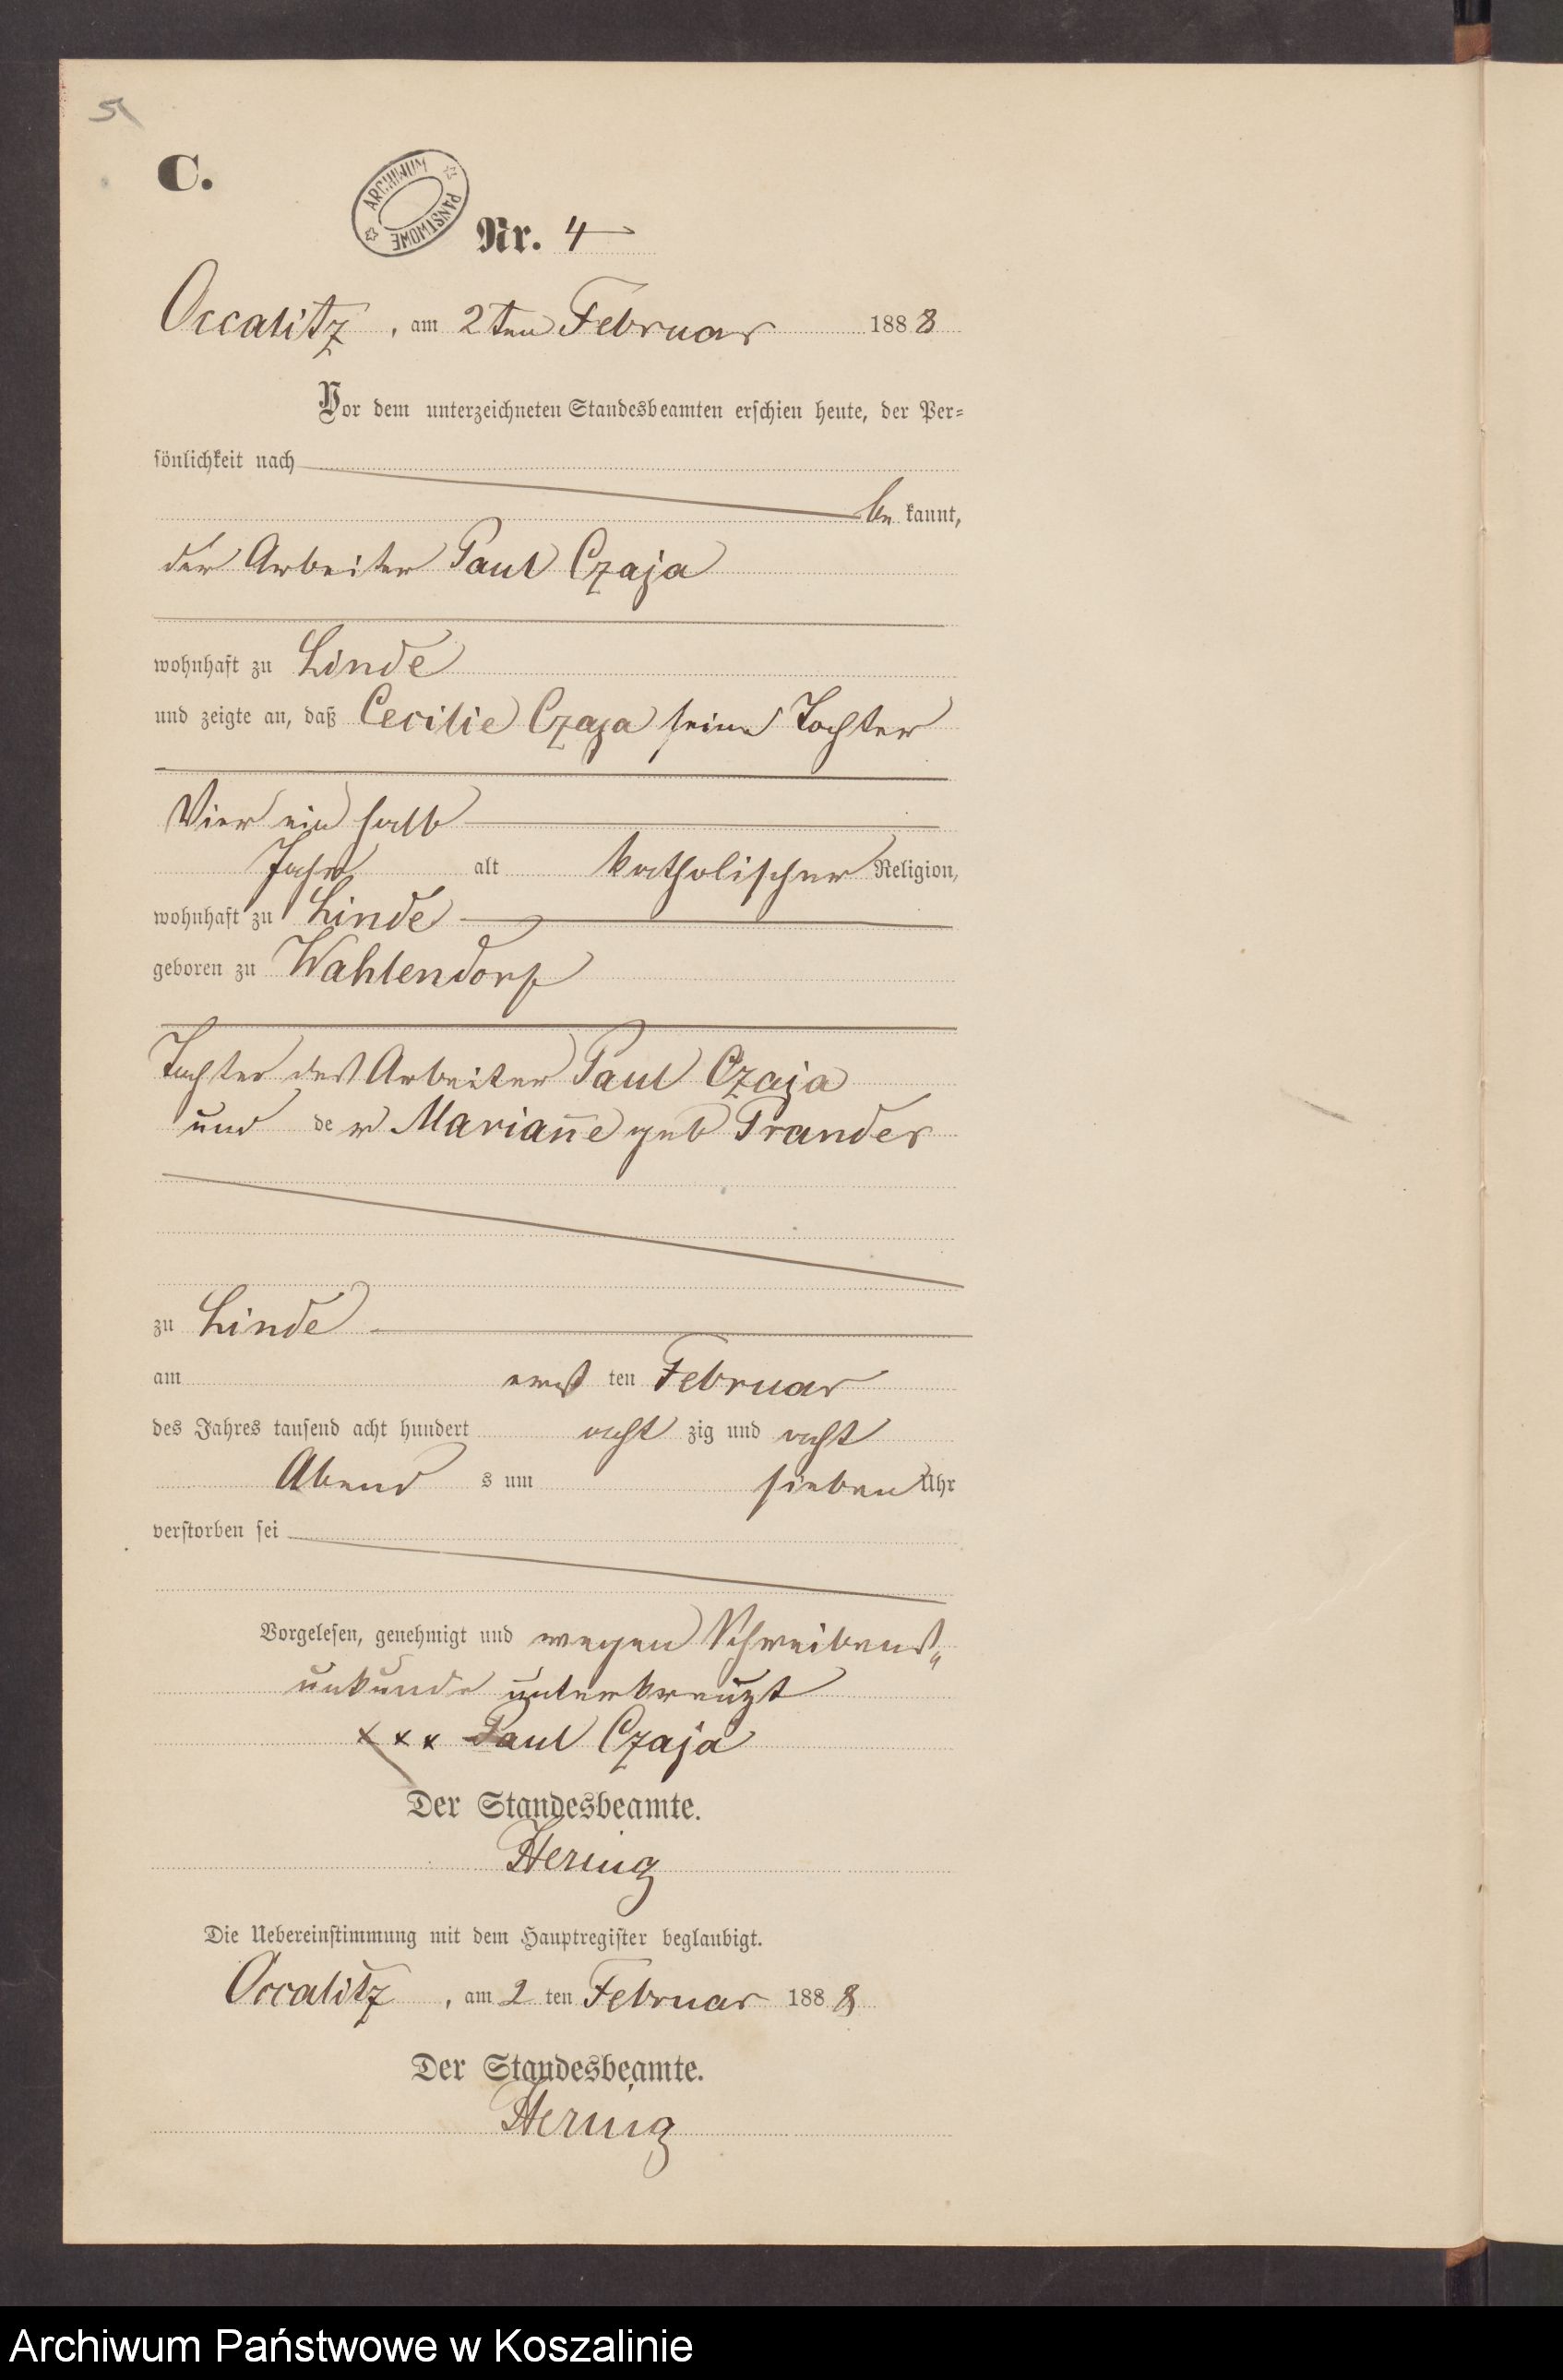 5
C.
ARCHIWUM PAŃSTWOWE
Nr. 4
Occalitz, am 2ten Februar 1888
Vor dem unterzeichneten Standesbeamten erschien heute, der Per=
sönlichkeit nach
be kannt,
der Arbeiter Paul Czaja
wohnhaft zu Linde
und zeigte an, daß Cecilie Czaja seine Tochter
Vier ein halb
Jahr alt katholischer Religion,
wohnhaft zu Linde
geboren zu Wahlendorf
Tochter des Arbeiter Paul Czaja
und der Marian̄e geb Prander
zu Linde
am erst ten Februar
des Jahres tausend acht hundert acht zig und acht
Abend s um sieben Uhr
verstorben sei
Vorgelesen, genehmigt und wegen Schreibens„
unkunde unterkreuzt
x x x Paul Czaja
Der Standesbeamte.
Hering
Die Uebereinstimmung mit dem Hauptregister beglaubigt.
Occalitz, am 2 ten Februar 1888
Der Standesbeamte.
Hering
Archiwum Państwowe w Koszalinie